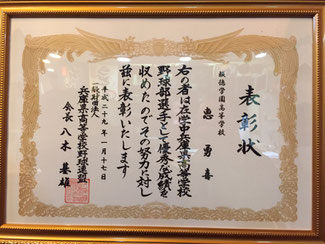 表彰状
報徳学園高等学校
忠勇喜
右の者は在学中兵庫県高等学校
野球部選手として優秀な成績を
収めたのでその努力に対し
茲に表彰いたします
平成二十九年一月十七日
一般財団法人
兵庫県高等学校野球連盟
会長 八木基雄